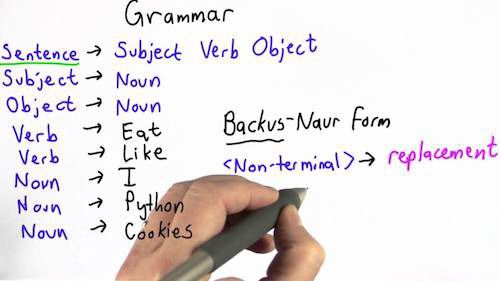 Grammar
Sentence → Subject Verb Object
Subject → Noun
Object → Noun
Verb → Eat
Verb → Like
Noun → I
Noun → Python
Noun → Cookies
Backus-Naur Form
<Non-terminal> → replacement